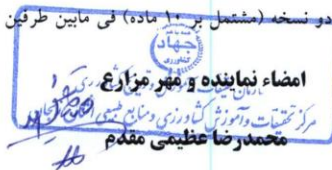 دو نسخه (مشتمل بر ۱۰ ماده) فی مابین طرفین
جهاد
کشاورزی
امضاء نماینده و مهر مزارع
سازمان تحقیقات
کشاورزی
مرکز تحقیقات و آموزش کشاورزی و منابع طبیعی
محمدرضا عظیمی مقدم